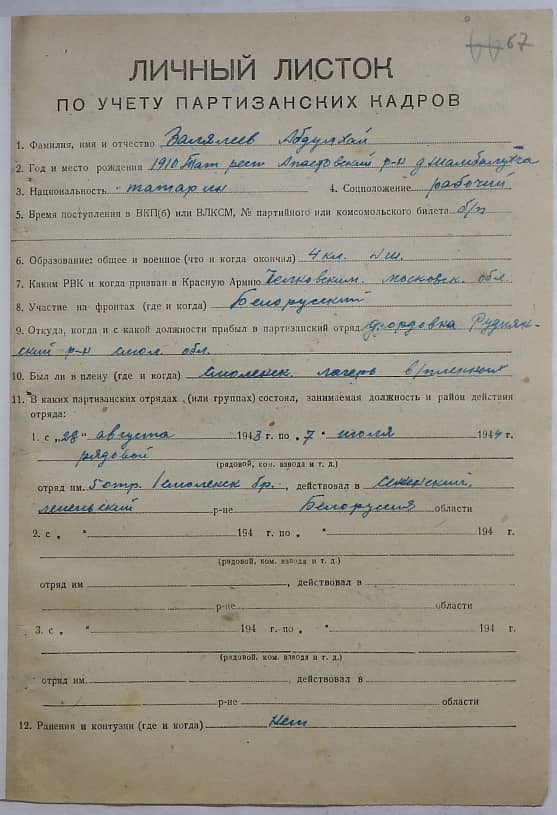 67
ЛИЧНЫЙ ЛИСТОК
ПО УЧЕТУ ПАРТИЗАНСКИХ КАДРОВ
1. Фамилия, имя и отчество Валялеев Абдулхай
2. Год и место рождения 1910 Тат. респ Апастовский р-н д.
3. Национальность татарин 4. Соцположение рабочий
5. Время поступления в ВКП(б) или ВЛКСМ, № партийного или комсомольского билета б/п
6. Образование: общее и военное (что и когда окончил) 4 кл.
7. Каким РВК и когда призван в Красную Армию московск. обл.
8. Участие на фронтах (где и когда) Белорусский
9. Откуда, когда и с какой должности прибыл в партизанский отряд Руднян-
ский р-н смол. обл.
10. Был ли в плену (где и когда) Смоленск. лагерь в/пленных
11. В каких партизанских отрядах (или группах) состоял, занимаемая должность и район действия
отряда:
1. с „28" августа 1943 г. по „7" июля 1944 г.
рядовой
(рядовой, ком. взвода и т. д.)
отряд им. 5 отр. 1 смоленск бр., действовал в
лепельский р-не Белоруссия области
2. с „ " 194 г. по „ " 194 г.
(рядовой, ком. взвода и т. д.)
отряд им , действовал в
р-не области
3. с „ " 194 г. по „ " 194 г.
(рядовой, ком. взвода и т. д.)
отряд им. , действовал в
р-не области
12. Ранения и контузии (где и когда) нет